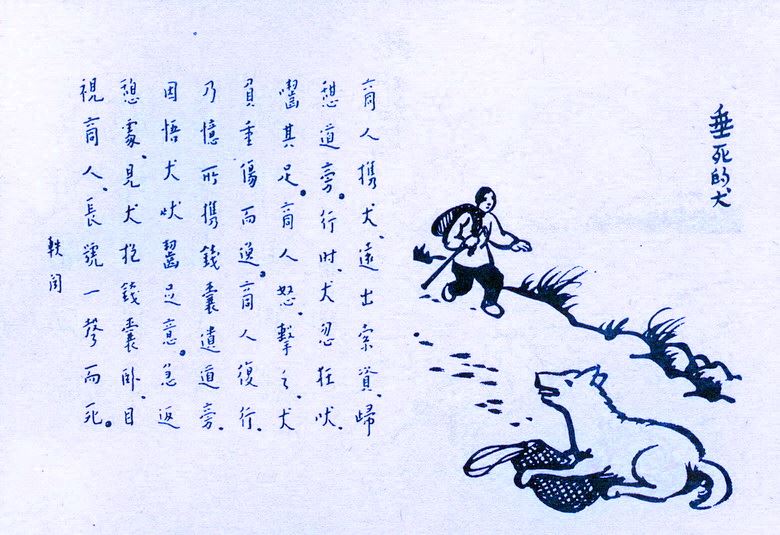 垂死的犬
商人携犬、遠出索資、歸
憩道旁。行时、犬忽狂吠、
嚙其足。商人怒、擊之、犬
負重傷而逸。商人復行、
乃憶所携錢囊遺道旁、
因悟犬吠嚙足意。急返
憩處、見犬抱錢囊卧、目
視商人、長號一聲而死。
軼闻